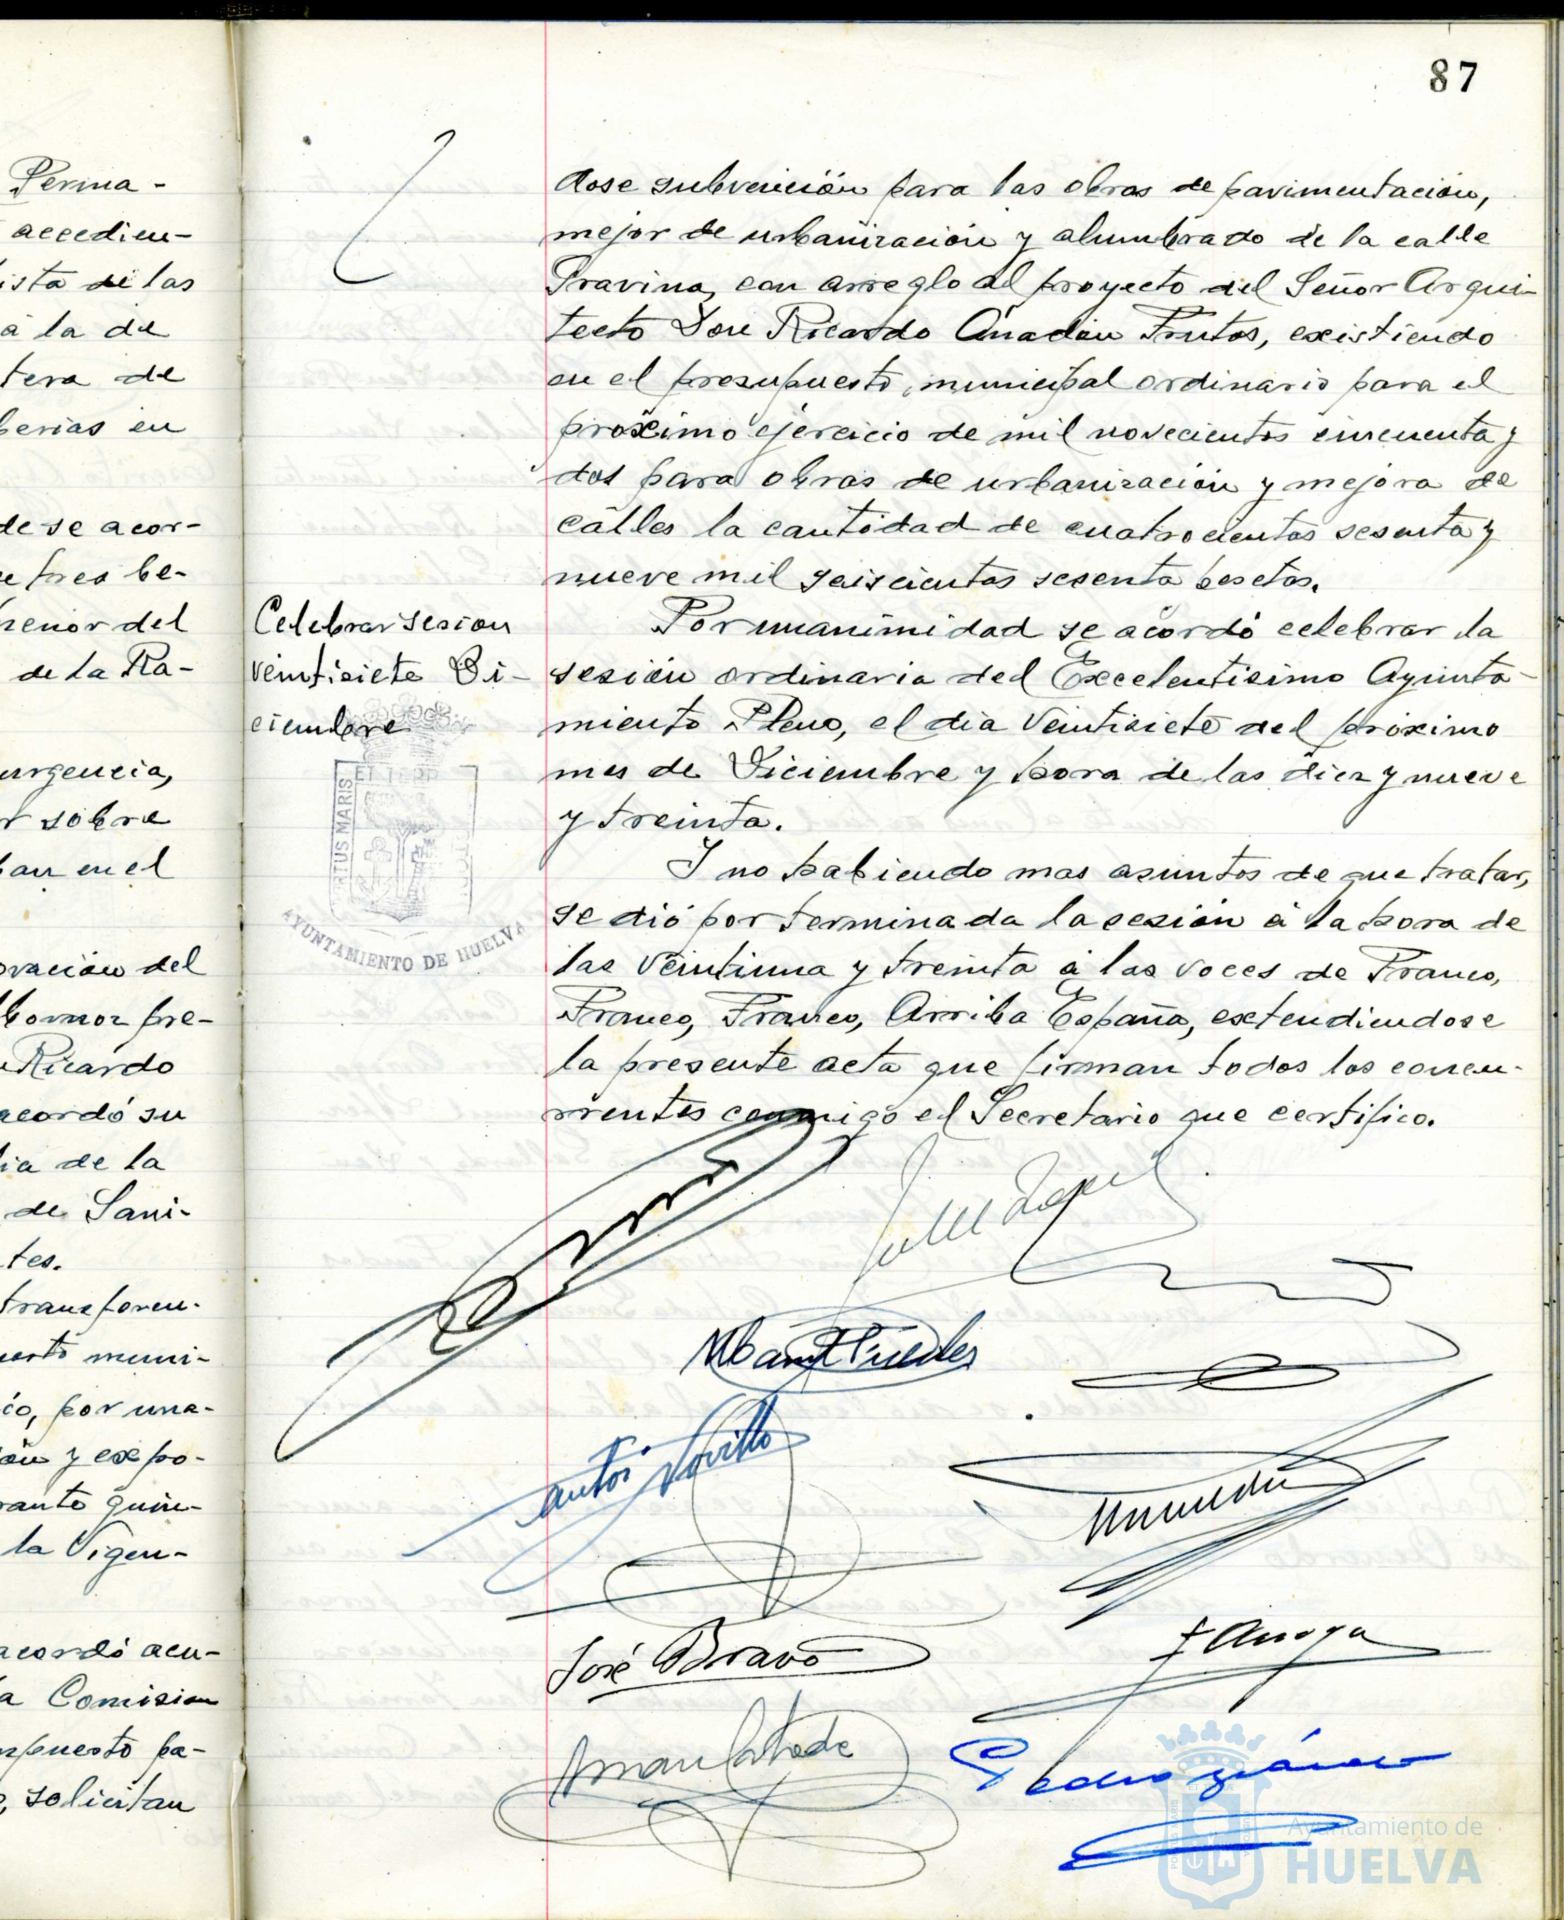 87
Perma-
accedien-
ista de las
a la de
tera de
berias en
de se acor-
e tres be-
menor del
de la Ra-
urgencia,
r sobre
ban en el
oración del
bornoz pre-
Ricardo
acordó su
ia de la
de Sani-
tes.
transferen-
uesto muni-
io, por una-
ón y expo-
rante quin-
la Vigen-
acordó acu-
a Comision
upuesto pa-
, solicitan
dose subvención para las obras de pavimentación,
mejor de urbanización y alumbrado de la calle
Pravina, con arreglo al proyecto del Señor Arqui-
tecto Don Ricardo Anadón Frutos, existiendo
en el presupuesto municipal ordinario para el
próximo ejercicio de mil novecientos cincuenta y
dos para obras de urbanización y mejora de
calles la cantidad de cuatrocientas sesenta y
nueve mil seiscientas sesenta pesetas.
Celebrar sesion
veintisiete Di-
ciembre
Por unanimidad se acordó celebrar la
sesión ordinaria del Excelentisimo Ayunta-
miento Pleno, el dia veintisiete del próximo
mes de Diciembre y hora de las diez y nueve
y treinta.
Y no habiendo mas asuntos de que tratar,
se dió por terminada la sesión á la hora de
las veintiuna y treinta á las voces de Franco,
Franco, Franco, Arriba España, extendiendose
la presente acta que firman todos los concu-
rrentes conmigo el Secretario que certifico.
PORTUS MARIS ET TERR
AYUNTAMIENTO DE HUELVA
José Bravo
Ayuntamiento de
HUELVA